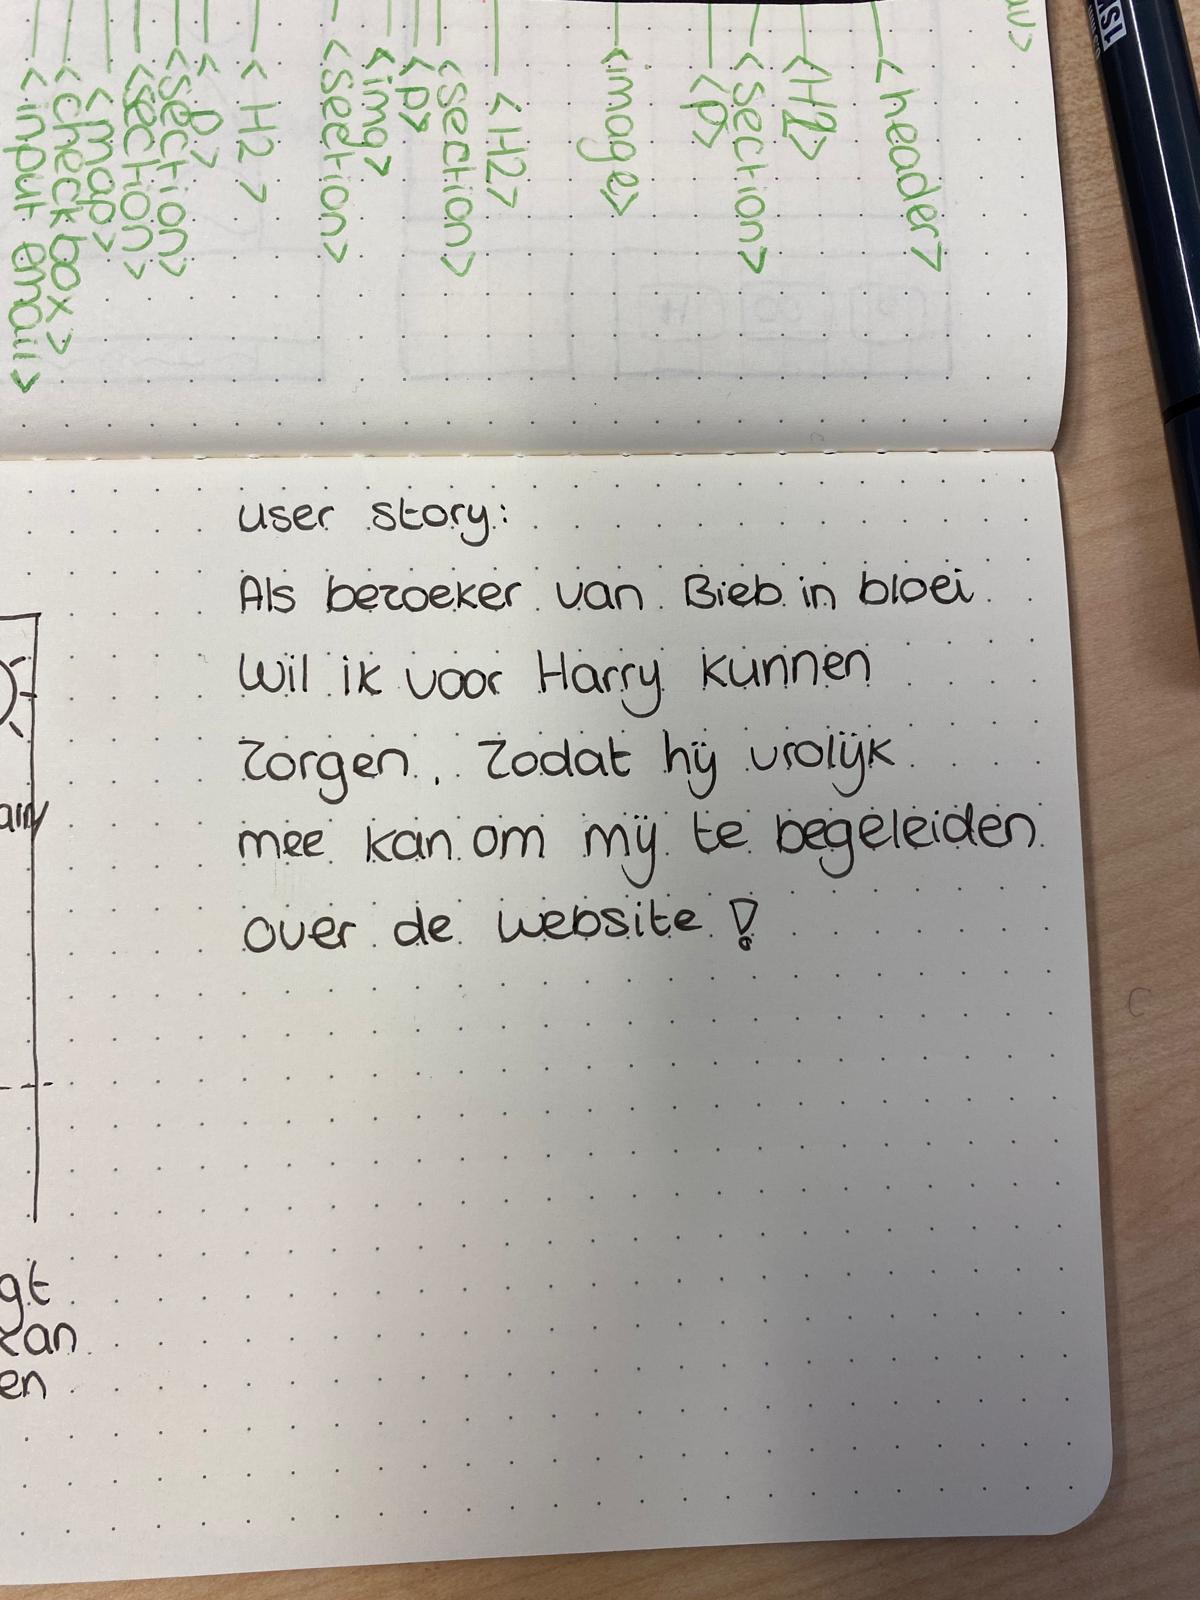 <header>
<H2>
<section>
<p>
<image>
<H2>
<section>
<p>
<img>
<section>
<H2>
<p>
<section>
<section>
<map>
<checkbox>
<input email>
user story:
Als bezoeker van Bieb in bloei
Wil ik voor Harry kunnen
Zorgen, Zodat hij vrolijk
mee kan om mij te begeleiden
over de website!
gt
kan
en